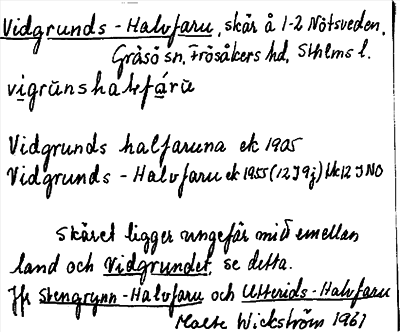 Vidgrunds - Halvfaru, skär å 1-2 Nötsveden,
Gräsö sn, Frösåkers hd, Sthlms l.
vigrūnshalvfárū
Vidgrunds halfaruna ek 1905
Vidgrunds - Halvfaru ek 1955 (12J9j) bk 12 J NO
Skäret ligger ungefär mitt emellan
land och Vidgrundet, se detta.
Jfr Stengrynn-Halvfaru och Utterids-Halvfaru
Malte Wickström 1961